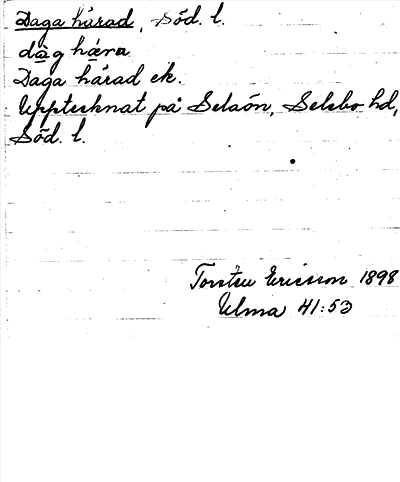 Daga härad, Söd. l.
dàg hæra
Daga härad ek.
Upptecknat på Selaön, Selebo hd,
Söd. l.
Torsten Ericsson 1898
Ulma 41:53